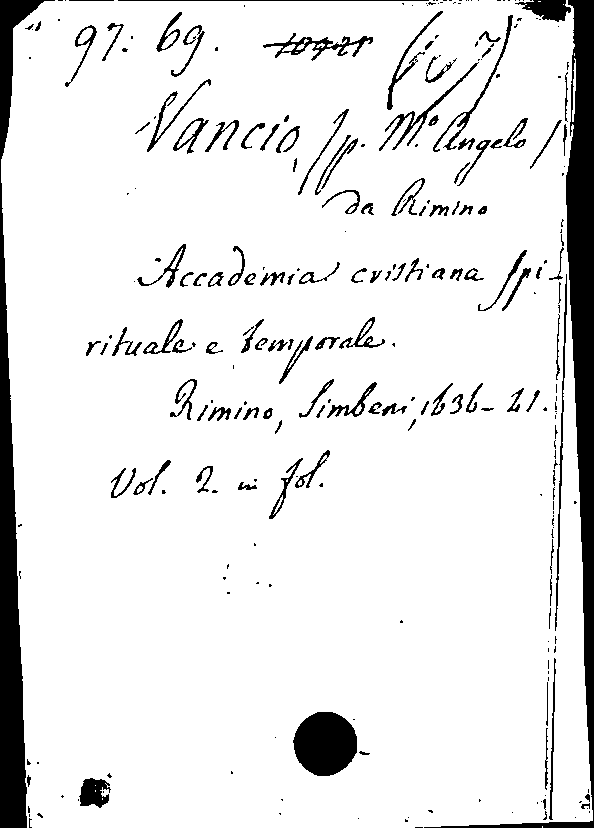 97: 69.
Vancio, /p. M.º Angelo/
da Rimino
Accademia cristiana spi-
rituale e temporale.
Rimino, Simbeni, 1636-
Vol. 2. in fol.